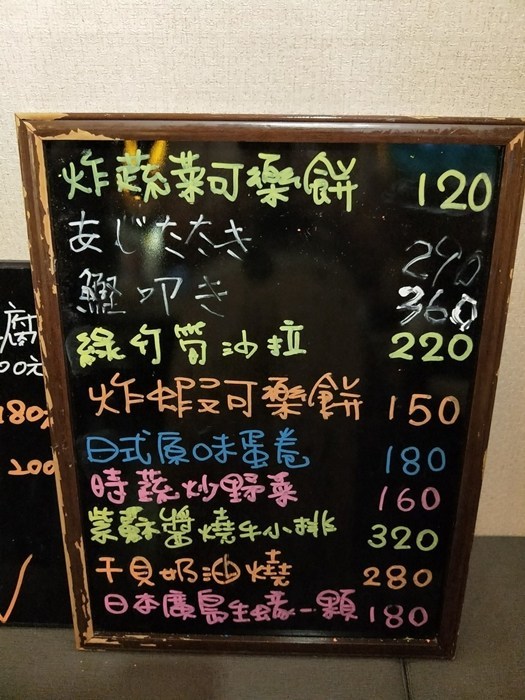 炸蔬菜可樂餅 120
あじたたき 290
鰹叩き 360
綠竹筍沙拉 220
炸蝦可樂餅 150
日式原味蛋卷 180
時蔬炒野菜 160
紫蘇醬燒牛小排 320
干貝奶油燒 280
日本廣島生蠔一顆 180
腐
00元
180
200